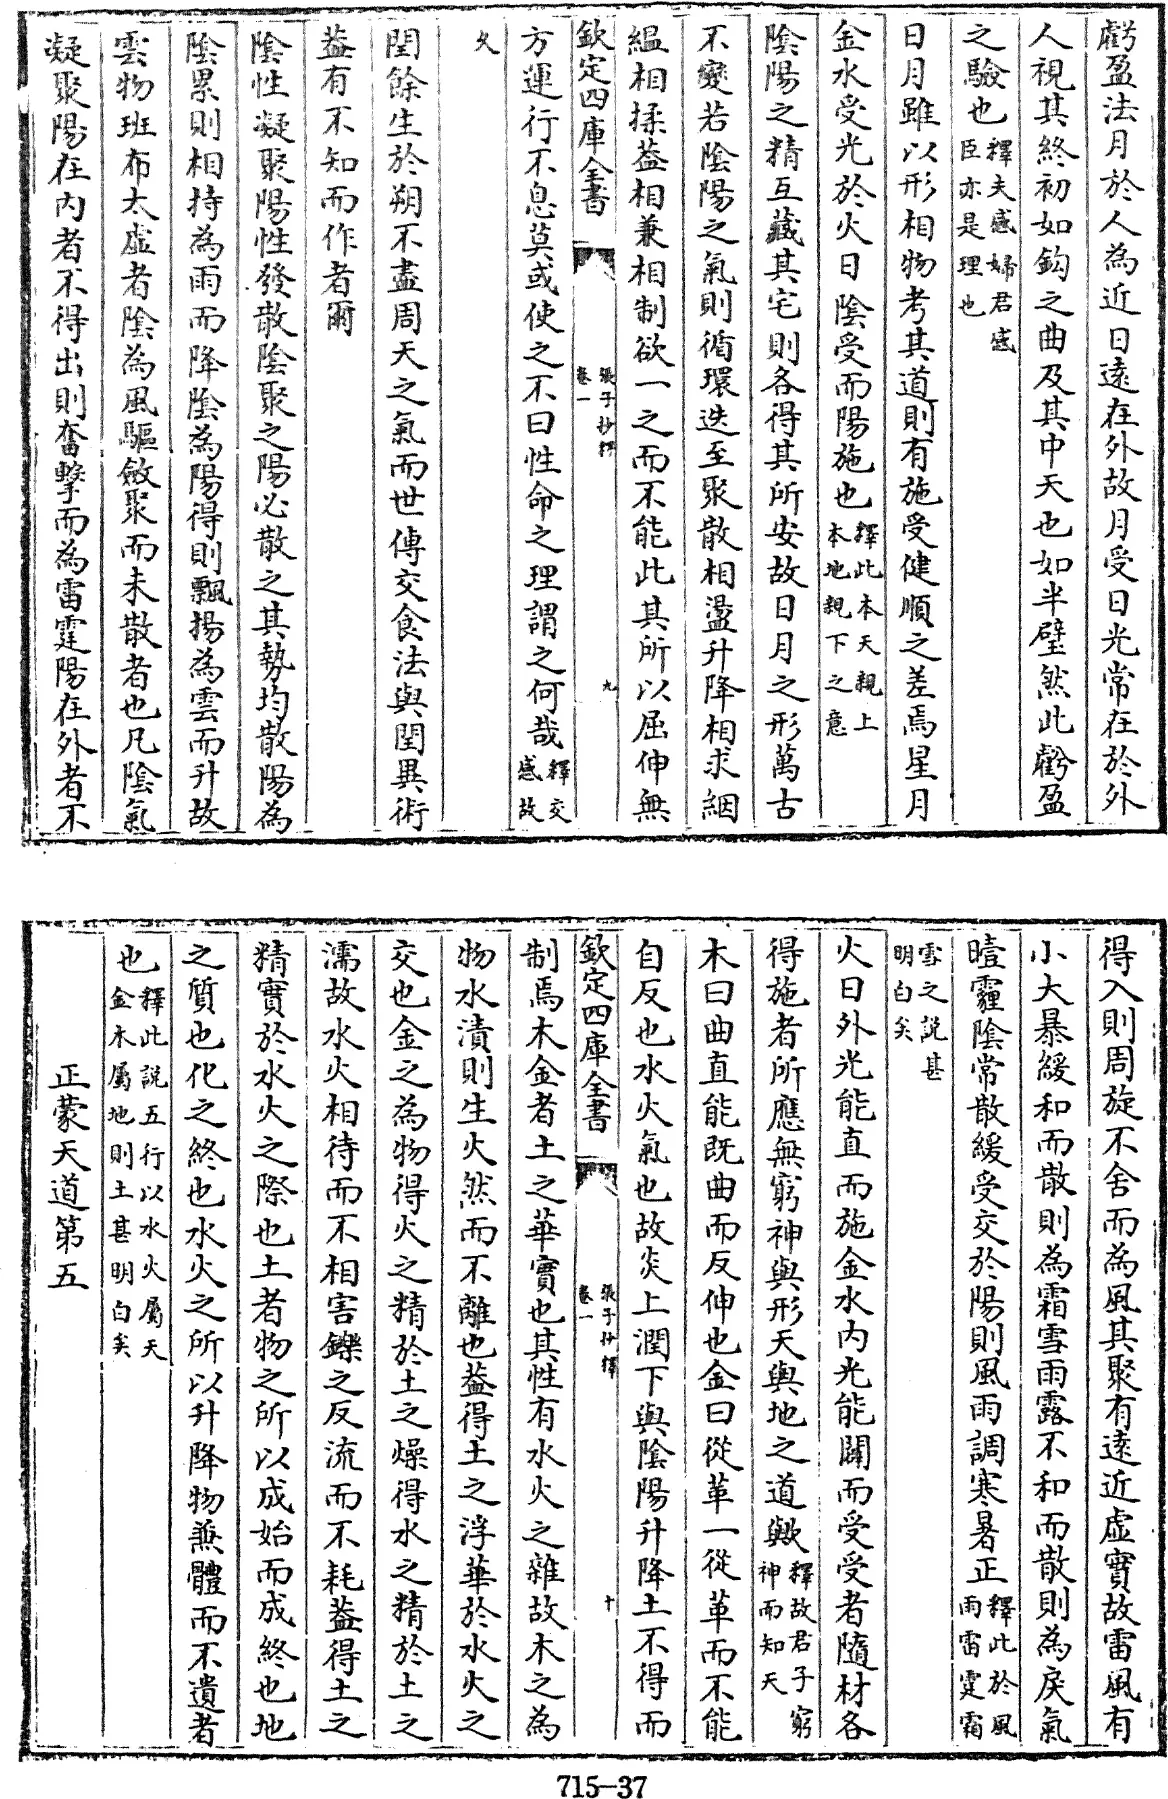 虧盈法月於人為近日遠在外故月受日光常在於外
人視其終初如鈎之曲及其中天也如半璧然此虧盈
之驗也釋夫感婦君感臣亦是理也
日月雖以形相物考其道則有施受健順之差焉星月
金水受光於火日陰受而陽施也釋此本天親上本地親下之意
陰陽之精互藏其宅則各得其所安故日月之形萬古
不變若陰陽之氣則循環迭至聚散相盪升降相求絪
緼相揉葢相兼相制欲一之而不能此其所以屈伸無
欽定四庫全書
張子抄釋
卷一
九
方運行不息莫或使之不曰性命之理謂之何哉釋交感故
久
閏餘生於朔不盡周天之氣而世傳交食法與閏異術
葢有不知而作者爾
陰性凝聚陽性發散陰聚之陽必散之其勢均散陽為
陰累則相持為雨而降陰為陽得則飄揚為雲而升故
雲物班布太虛者陰為風驅斂聚而未散者也凡陰氣
凝聚陽在內者不得出則奮擊而為雷霆陽在外者不
得入則周旋不舍而為風其聚有遠近虛實故雷風有
小大暴緩和而散則為霜雪雨露不和而散則為戾氣
曀霾陰常散緩受交於陽則風雨調寒暑正釋此於風雨雷霆霜
雪之説甚明白矣
火日外光能直而施金水內光能闢而受受者隨材各
得施者所應無窮神與形天與地之道歟釋故君子窮神而知天
木曰曲直能既曲而反伸也金曰從革一從革而不能
自反也水火氣也故炎上潤下與陰陽升降土不得而
欽定四庫全書
張子抄釋
卷一
十
制焉木金者土之華實也其性有水火之雜故木之為
物水漬則生火然而不離也葢得土之浮華於水火之
交也金之為物得火之精於土之燥得水之精於土之
濡故水火相待而不相害鑠之反流而不耗葢得土之
精實於水火之際也土者物之所以成始而成終也地
之質也化之終也水火之所以升降物兼體而不遺者
也釋此説五行以水火屬天金木屬地則土甚明白矣
正蒙天道第五
715-37